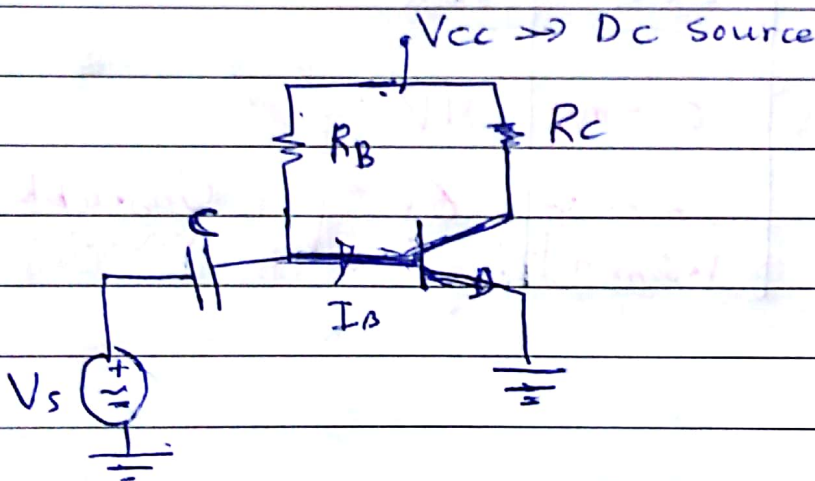 Vcc >> Dc Source
RB
Rc
C
IB
Vs
+